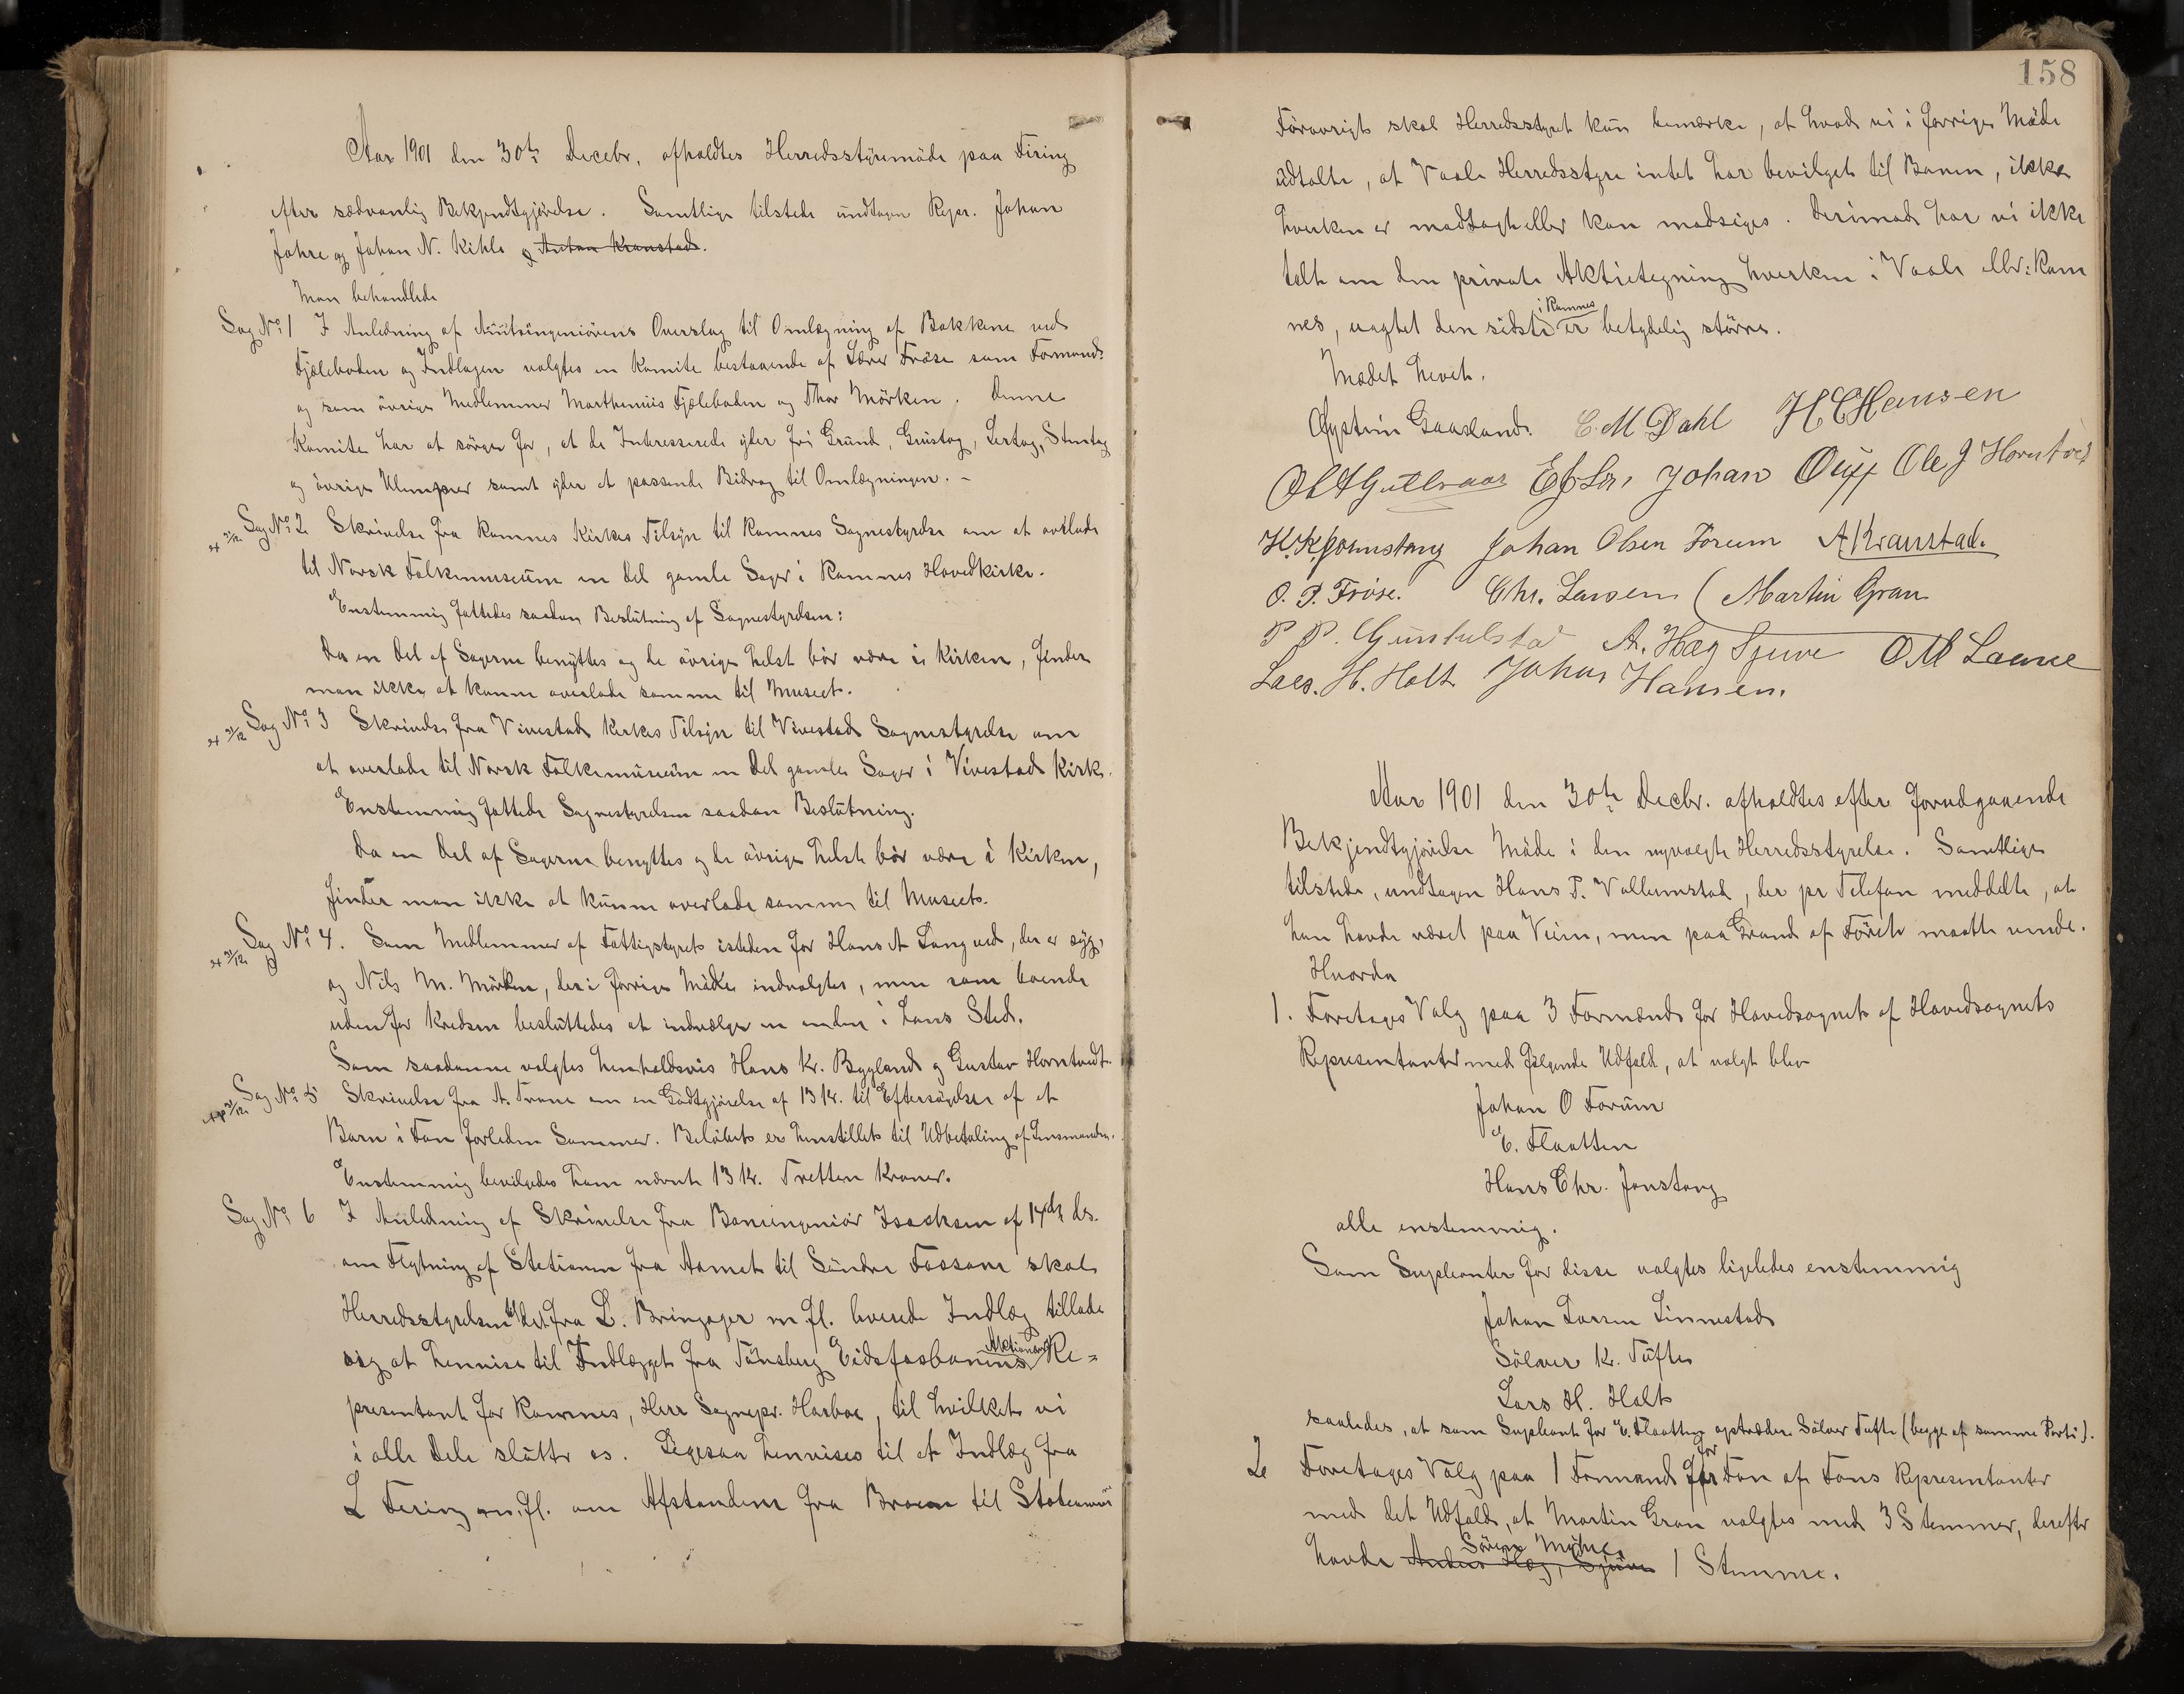 Aar 1901 den 30te Decebr. afholdtes Herredsstyremöde paa Firing
efter sædvanlig Bekjendtgjörelse. Samtlige tilstede undtagen Repr. Johan
Jahre og Johan N. Kihle og Anton Kranstad.
Man behandlede
Sag No 1 I Anledning af Amtsingeniörens Overslag til Omlægning af Bakkene ved
Fjæleboden og Indlagen valgtes en Komite bestaaende af Lærer Fröse som Formand
og som övrige Medlemmer Marthenius Fjæleboden og Thor Mörken. Denne
Komite har at sörge for, at de Interesserede yder fri Grund, Grustag, Lertag, Stentag
og övrige Ulemper samt yder et passende Bidrag til Omlægningen. -
Sag No 2 Skrivelse fra Ramnes Kirkes Tilsyn til Ramnes Sognestyrelse om at overlade
til Norsk Folkemuseum en Del gamle Sager i Ramnes Hovedkirke.
Enstemmig fattedes saadan Beslutning af Sognestyrelsen:
Da en Del af Sagerne benyttes og de övrige helst bör være i Kirken, finder
man ikke at kunne overlade samme til Museet.
Sag No 3 Skrivelse fra Vivestad Kirkes Tilsyn til Vivestad Sognestyrelse om
at overlade til Norsk Folkemuseum en Del gamle Sager i Vivestad Kirke.
Enstemmig fattede Sognestyrelsen saadan Beslutning.
Da en Del af Sagerne benyttes og de övrige helst bör være i Kirken,
finder man ikke at kunne overlade samme til Museet.
Sag No 4. Som Medlemmer af Fattigstyret isteden for Hans A Langved, der er syg,
og Nils M. Mörken, der i forrige Möde indvalgtes, men som boende
udenfor Kredsen besluttedes at indvælge en anden i hans Sted.
Som saadanne valgtes henholdsvis Hans Kr. Bygland og Gustav Horntvedt.
Sag No 5 Skrivelse fra A. Trane om en Godtgjörelse af 13 Kr. til Eftersögelse af et
Barn i Fon forleden Sommer. Belöbet er henstillet til Udbetaling af Lensmanden.
Enstemmig bevilgedes ham nævnte 13 Kr. Tretten Kroner.
Sag No 6 I Anledning af Skrivelse fra Baneingeniör Isachsen af 14de ds.
om Flytning af Stationen fra Aamet til Söndre Fossane skal
Herredsstyrelsen til det fra L. Bringager m fl. hvorede Indlæg tillade
sig at henvise til Indlægget fra Tönsberg Eidsfosbanens Aktionær Re=
presentant for Ramnes, Herr Sognepr. Harboe, til hvilket vi
i alle Dele slutter os. Ligesaa henvises til et Indlæg fra
L Fering m.fl. om Afstandene fra Broen til Stationerne
158
Forövrigt skal Herredsstyret kun bemærke, at hvad vi i forrige Möde
udtalte, at Vaale Herredsstyre intet har bevilget til Banen, ikke
hverken er modsagt eller kan modsiges. Derimod har vi ikke
talt om den private Aktietegning hverken i Vaale eller Ram
nes, uagtet den sidste i Ramnes er betydelig större.
Mödet hævet.
Øystein Gaasland. C. M Dahl H C Hansen
Johan Ouff Ole J Horntvet
Johan Olsen Forum A Kranstad.
O. P. Fröse. Chr. Larsen Martin Gran
P P. Gunhilstad A. Hæg Sjuve O M Laane
Lars. H. Holt Johan Hansen.
Aar 1901 den 30te Decbr. afholdtes efter forudgaaende
Bekjendtgjörelse Möde i den nyvalgte Herredsstyrelse. Samtlige
tilstede, undtagen Hans T. Vallumstad, der pr Telefon meddelte, at
han havde været paa Veien, men paa Grund af Föret maatte vende.
Hvorda
1. Foretages Valg paa 3 Formænd for Hovedsognet af Hovedsognets
Representanter med fölgende Udfald, at valgt blev
Johan O Forum
E. Flaatten
Hans Chr. Jonstang
alle enstemmig.
Som Supleanter for disse valgtes ligeledes enstemmig
Johan Larsen Linnestad
Sölver K. Tufte
Lars H. Holt
saaledes, at som Supleant for E. Flaatten optræder Sölver Tufte (begge af samme Parti).
2 Foretages Valg paa 1 Formand for Fon af Fons Representanter
med det Udfald, at Martin Gran valgtes med 3 Stemmer, derefter
havde Anders Hæg, Sjuve Sören Myhre 1 Stemme.